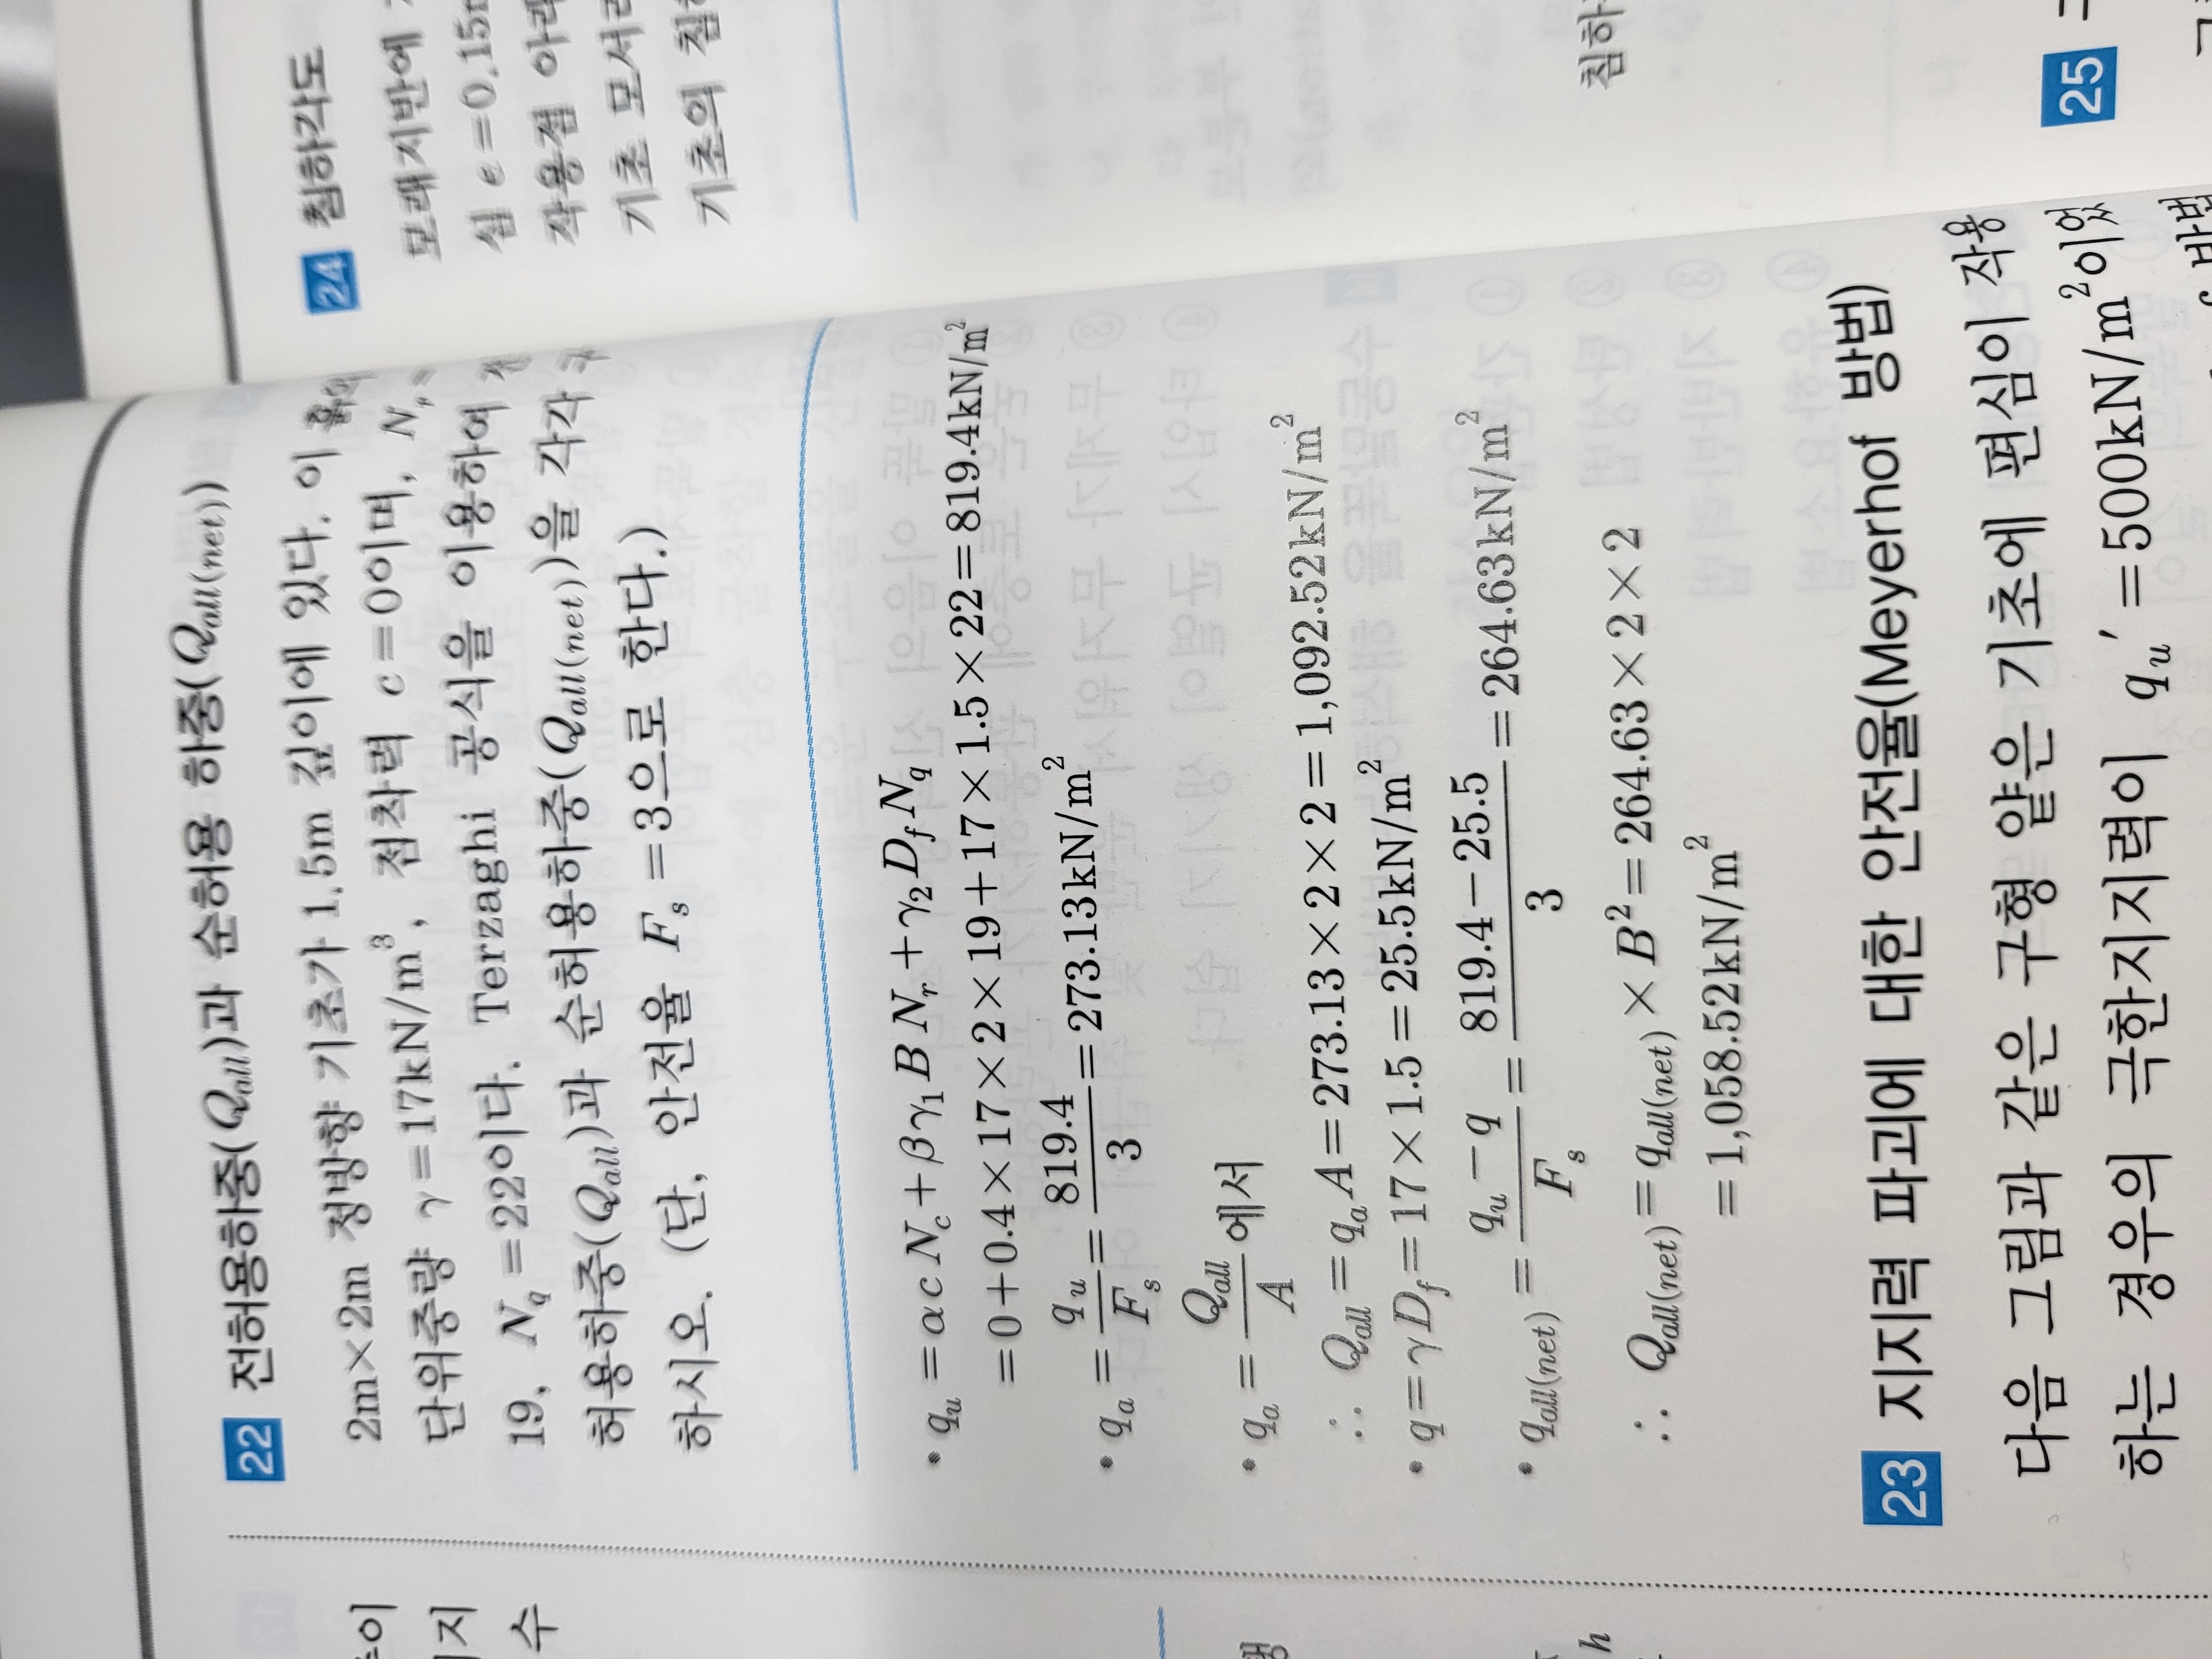 22 전허용하중(Q_all)과 순허용 하중(Q_all(net))
2m×2m 정방향 기초가 1.5m 깊이에 있다. 이 흙의
단위중량 γ=17kN/m³, 점착력 c=0이며, N_r=
19, N_q=22이다. Terzaghi 공식을 이용하여
허용하중(Q_all)과 순허용하중(Q_all(net))을 각각 구
하시오. (단, 안전율 F_s=3으로 한다.)
• q_u = αcN_c + βγ₁BN_r + γ₂D_fN_q
= 0+0.4×17×2×19+17×1.5×22=819.4kN/m²
• q_a = q_u/F_s = 819.4/3 = 273.13kN/m²
• q_a = Q_all/A 에서
∴ Q_all = q_a A = 273.13×2×2 = 1,092.52kN/m²
• q = γD_f = 17×1.5 = 25.5kN/m²
• q_all(net) = (q_u − q)/F_s = (819.4−25.5)/3 = 264.63kN/m²
∴ Q_all(net) = q_all(net) × B² = 264.63×2×2
= 1,058.52kN/m²
23 지지력 파괴에 대한 안전율(Meyerhof 방법)
다음 그림과 같은 구형 얕은 기초에 편심이 작용
하는 경우의 극한지지력이 q_u′=500kN/m²이었
방법
24 침하각도
모래지반에
심 e=0.15m
작용점 아래
기초 모서리
기초의 침하
침하
25 구
수이
지
수
h